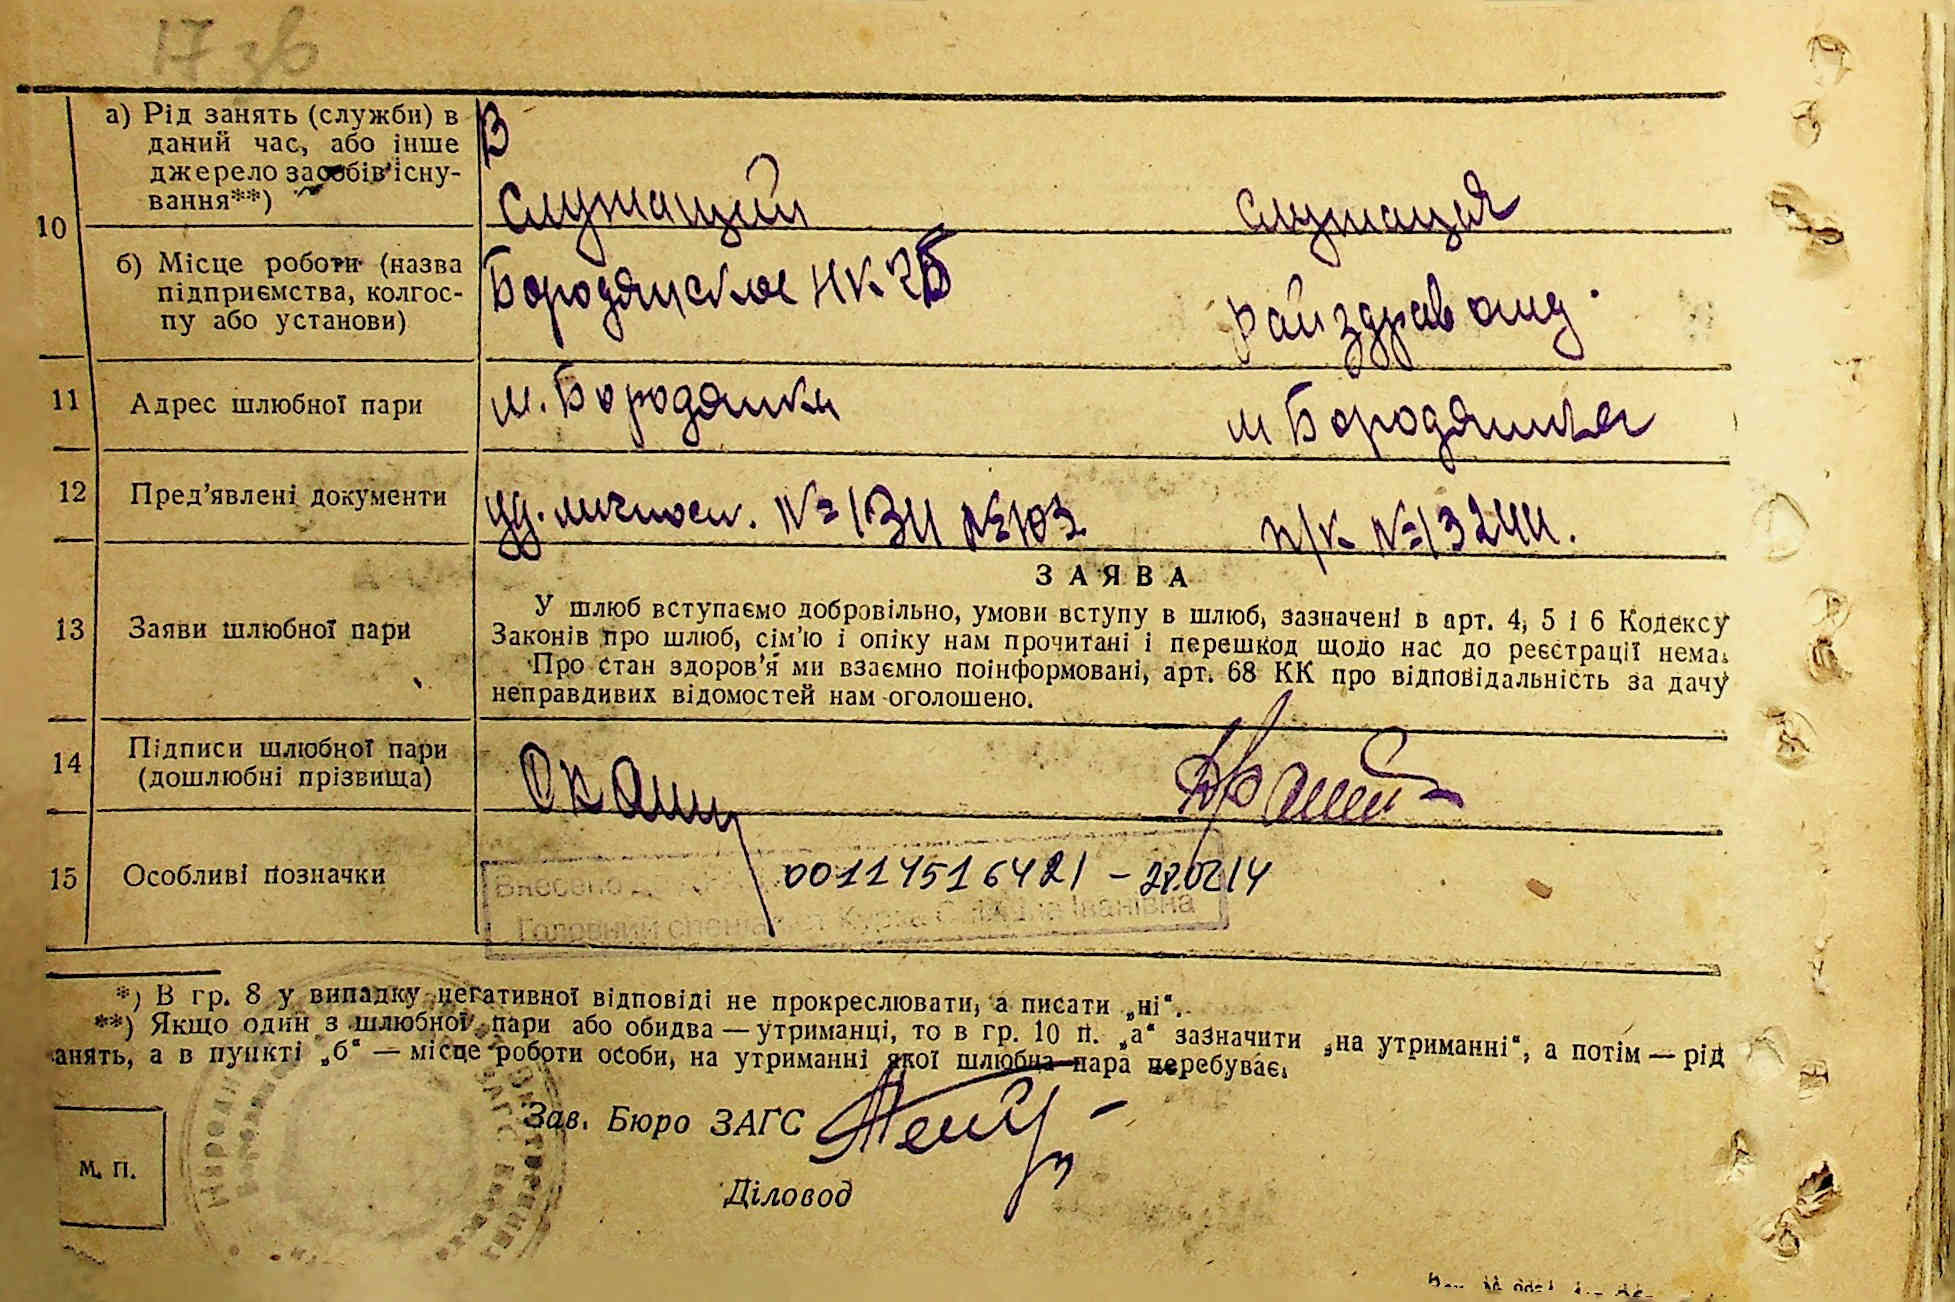 17 зв
а) Рід занять (служби) в
даний час, або інше
джерело засобів існу-
вання**)
10
В
служащий
служащая
б) Місце роботи (назва
підприємства, колгос-
пу або установи)
Бородянское НК
райздрав
11
Адрес шлюбної пари
м. Бородянка
м Бородянка
12
Пред'явлені документи
уд. личност. №
п/к №
ЗАЯВА
13
Заяви шлюбної пари
У шлюб вступаємо добровільно, умови вступу в шлюб, зазначені в арт. 4, 5 і 6 Кодексу
Законів про шлюб, сім'ю і опіку нам прочитані і перешкод щодо нас до реєстрації нема.
Про стан здоров'я ми взаємно поінформовані, арт. 68 КК про відповідальність за дачу
неправдивих відомостей нам оголошено.
14
Підписи шлюбної пари
(дошлюбні прізвища)
15
Особливі позначки
00114516421 –
Внесено до
Головний спеціаліст Іванівна
*) В гр. 8 у випадку негативної відповіді не прокреслювати, а писати „ні“.
**) Якщо один з шлюбної пари або обидва — утриманці, то в гр. 10 п. „а“ зазначити „на утриманні“, а потім — рід
анять, а в пункті „б“ — місце роботи особи, на утриманні якої шлюбна пара перебуває.
Зав. Бюро ЗАГС
М. П.
Діловод